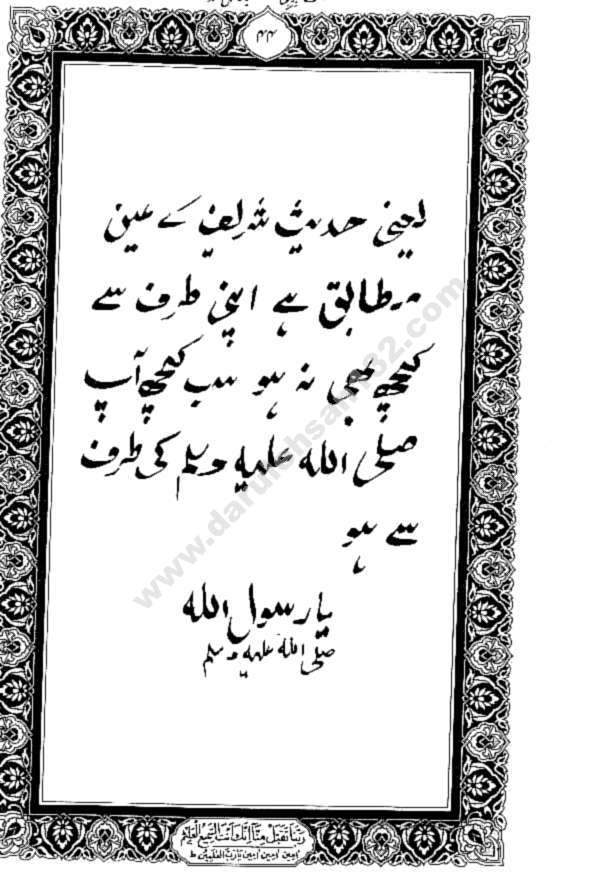 ۴۴
یعنی حدیث شریف کے عین
مطابق ہے اپنی طرف سے
کچھ بھی نہ ہو سب کچھ آپ
صلی اللہ علیہ وسلم کی طرف
سے ہو
یا رسول اللہ
صلی اللہ علیہ وسلم
www.darulehsan
32.com
رَبَّنَا تَقَبَّلْ مِنَّا اِنَّكَ اَنْتَ السَّمِيْعُ الْعَلِيْمُ
اٰمِين اٰمِين اٰمِين يَارَبَّ الْعٰلَمِيْنَ ط